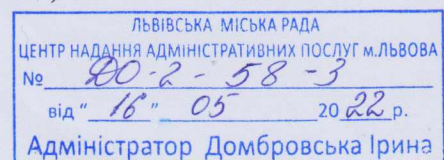 ЛЬВІВСЬКА МІСЬКА РАДА
ЦЕНТР НАДАННЯ АДМІНІСТРАТИВНИХ ПОСЛУГ м.ЛЬВОВА
№ ДО-2-58-3
від "16" 05 2022 р.
Адміністратор Домбровська Ірина